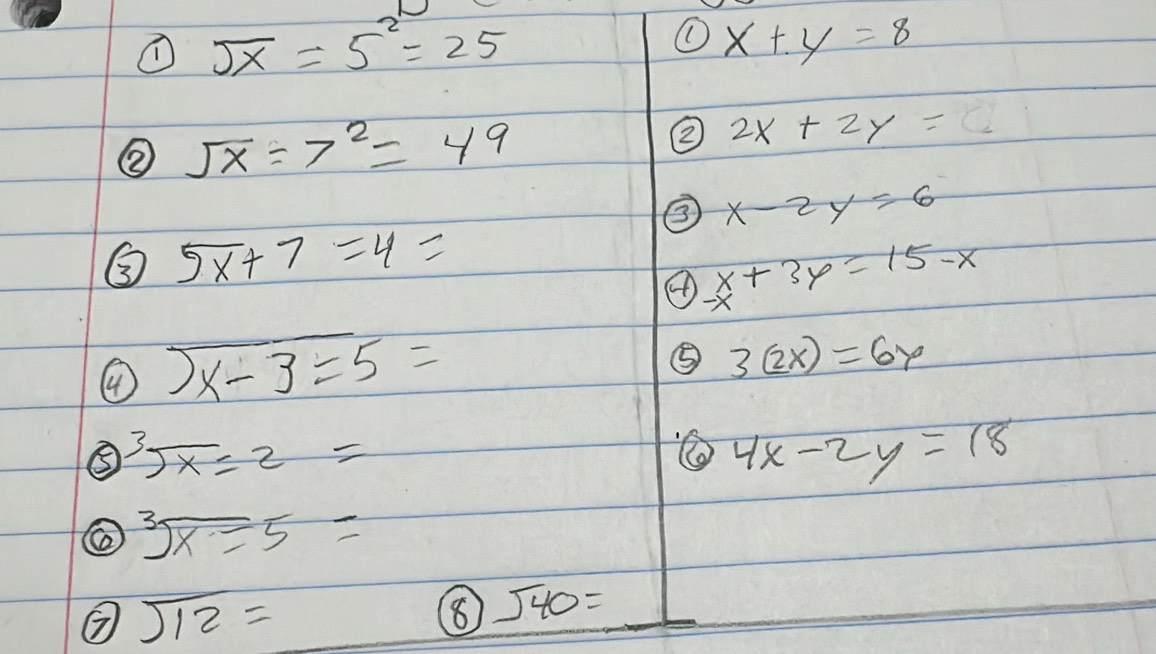 ① √x = 5² = 25
② √x = 7² = 49
③ √x + 7 = 4 =
④ √x - 3 = 5 =
⑤ ³√x = 2 =
⑥ ³√x = 5 =
⑦ √12 =
⑧ √40 =
① x + y = 8
② 2x + 2y =
③ x - 2y = 6
④ x + 3y = 15 - x
-x
⑤ 3(2x) = 6y
⑥ 4x - 2y = 18